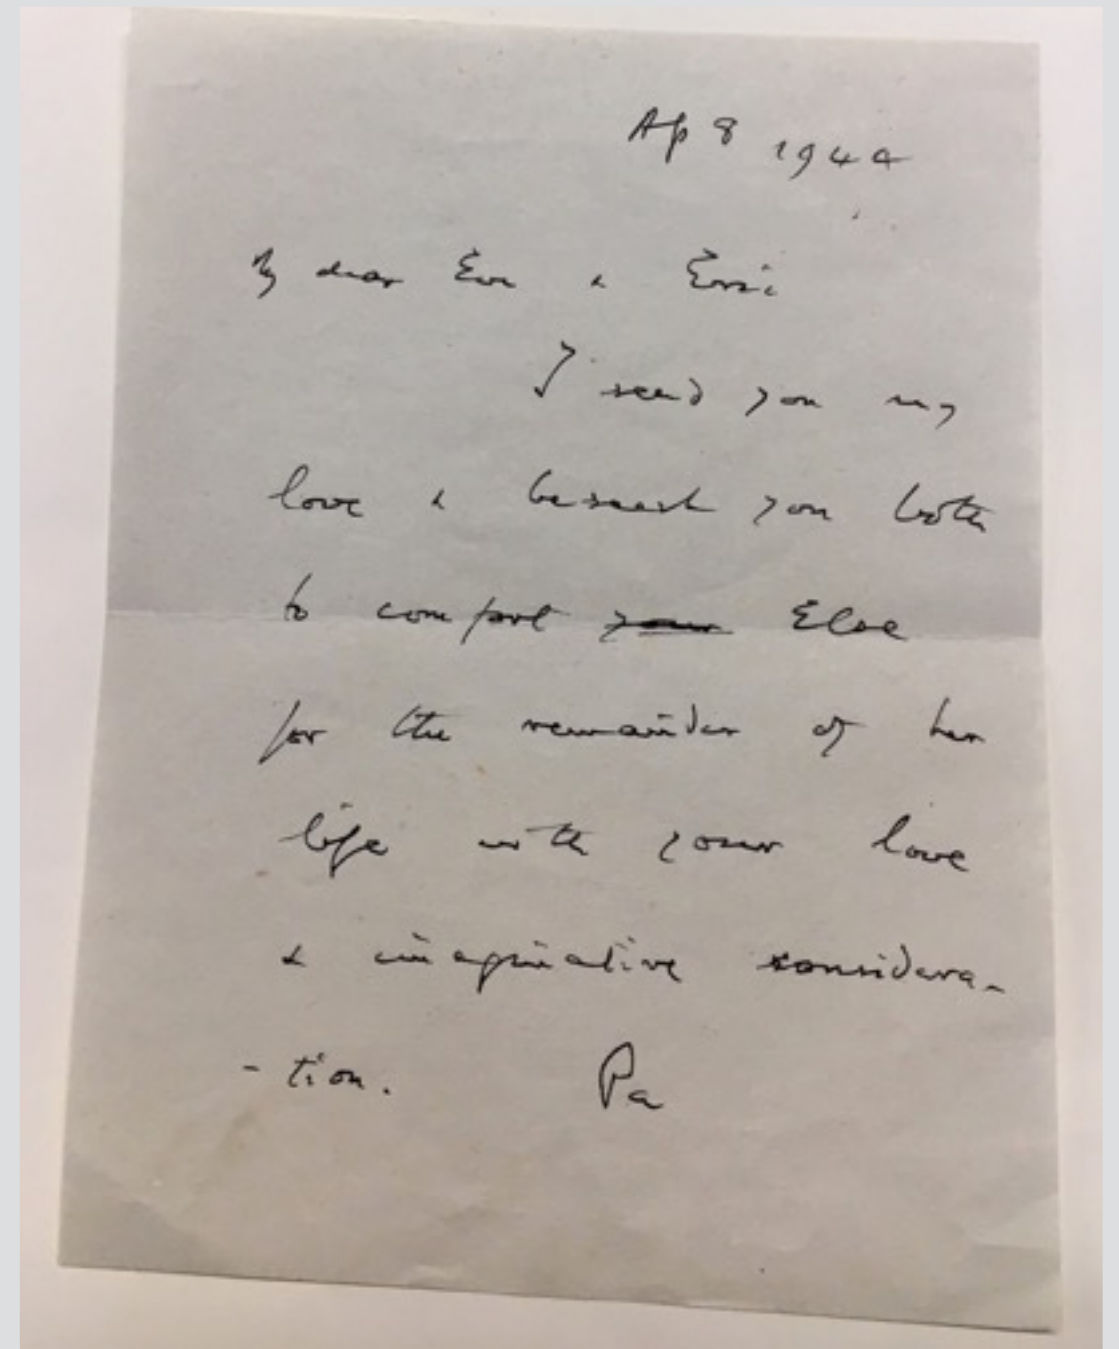 Ap 8 1944
My dear Eve & Enzi
I send you my
love & beseech you both
to comfort your Else
for the remainder of her
life with your love
& imaginative considera-
-tion. Pa